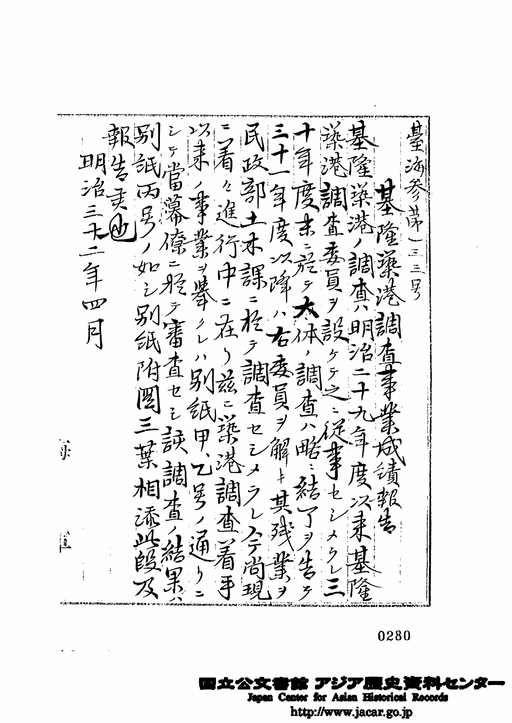 臺海參第一三三号
基隆築港調査事業成績報告
基隆築港ノ調査ハ明治二十九年度以来基隆
築港調査委員ヲ設ケテ之ニ従事セシメラレ三
十年度末ニ於テ大体ノ調査ハ略ニ結了ヲ告テ
三十一年度以降ハ右委員ヲ解キ其残業ヲ
民政部土木課ニ於テ調査セシメラレ今尚現
ニ着々進行中ニ在リ茲ニ築港調査着手
以来ノ事業ヲ挙クレハ別紙甲乙号ノ通リニ
シテ當幕僚ニ於テ審査セシ該調査ノ結果ハ
別紙丙号ノ如シ別紙附圖三葉相添此段及
報告候也
明治三十二年四月
海
0280
国立公文書館 アジア歴史資料センター
Japan Center for Asian Historical Records
http://www.jacar.go.jp